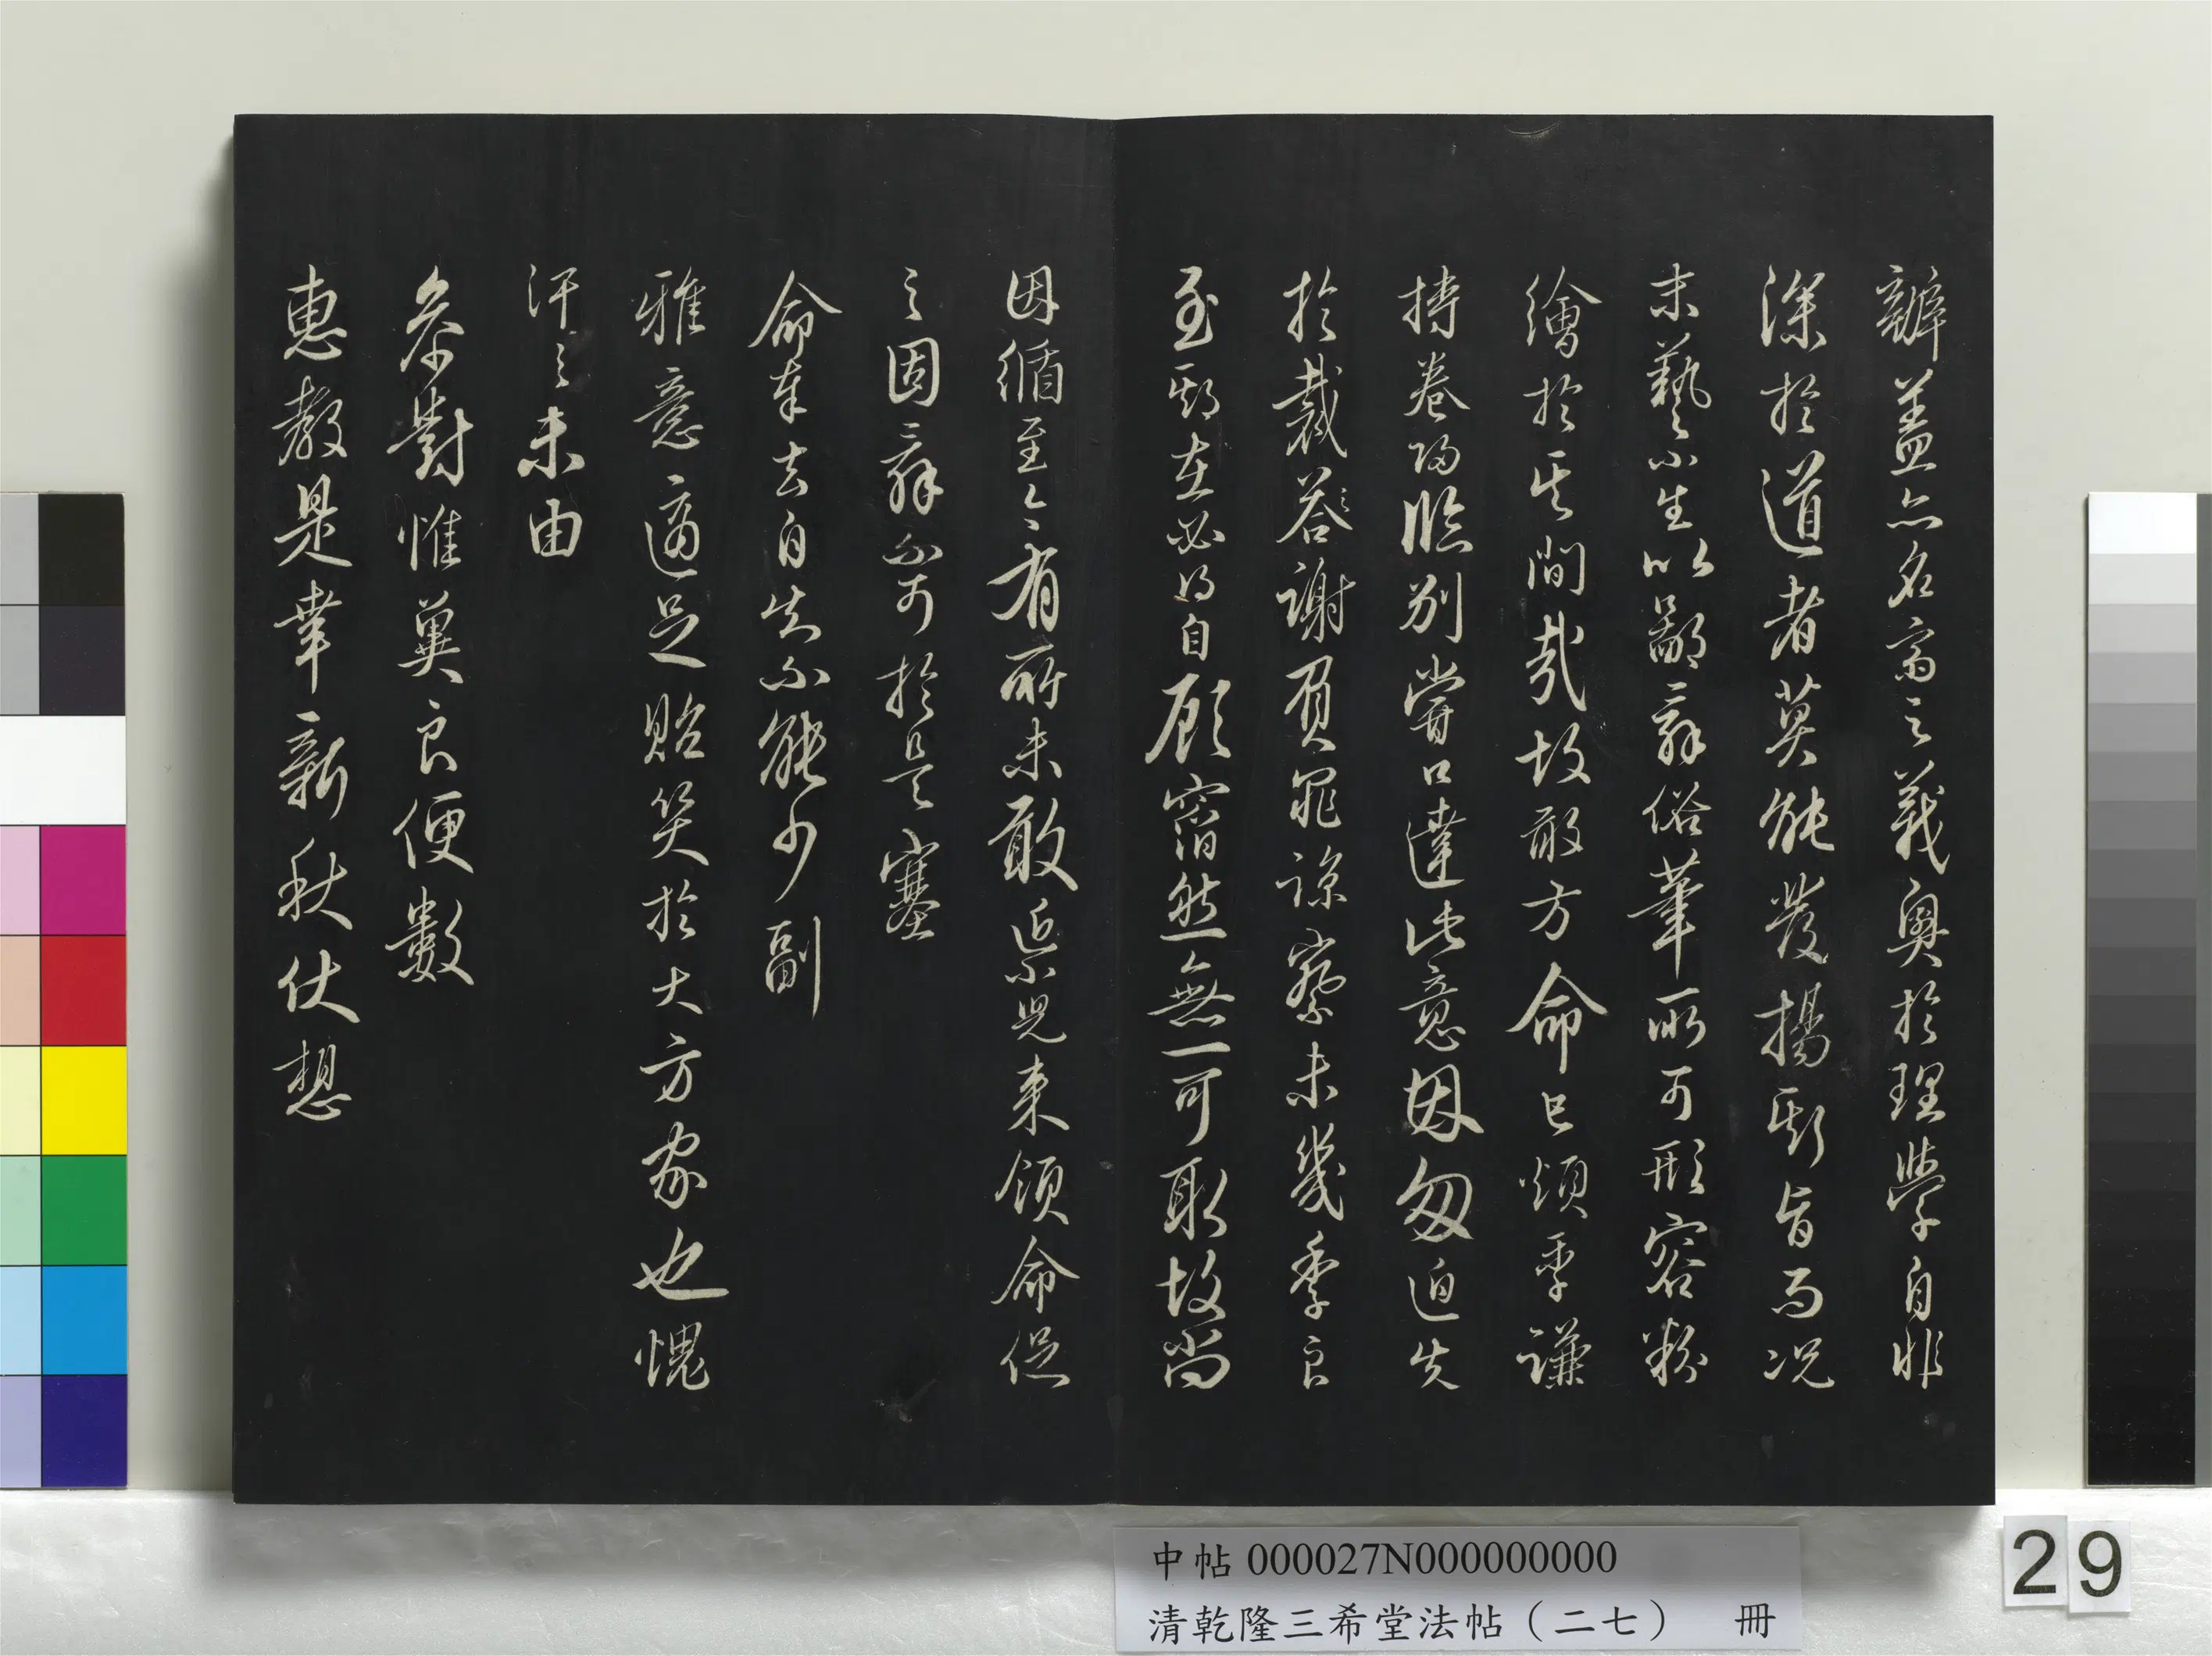 辭蓋亦名齋之義奧於理學自非
深於道者莫能發揚斯旨而況
末藝小生以鄙辭俗筆所可形容粉
繪於其間哉故敢方命已煩季謙
持卷歸臨別嘗口達此意因匆迫失
於裁答謝負罪諒察未幾季良
至斯在必得自顧窅然無一可取故尚
因循至今有所未敢近小兒來領命促
之固辭不可於是塞
命奉去自知不能少副
雅意適足貽笑於大方家也愧
汗汗未由
參對惟冀良便數
惠教是幸新秋伏想
中帖 000027N000000000
清乾隆三希堂法帖（二七） 冊
29